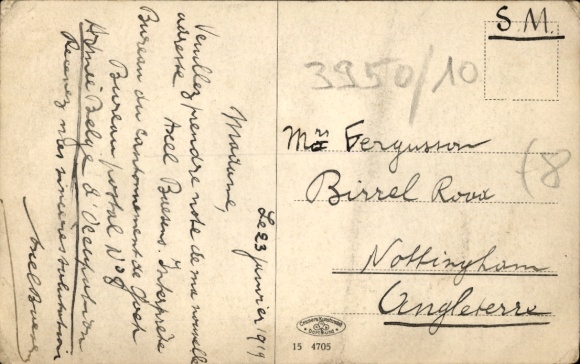 Le 23 janvier 1919
Madame,
Veuillez prendre note de ma nouvelle
adresse Axel Buesens. Interprète
Bureau du cantonnement de Goch
Bureau postal No 8
Armée Belge d'Occupation
Recevez mes sincères salutations
S.M.
3950/10
Mrs Fergusson
Birrel Road
Nottingham
Angleterre
(8
15 4705